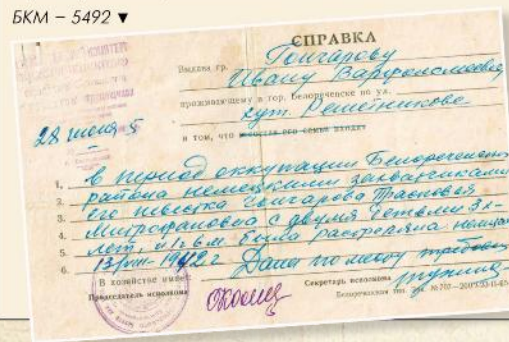 БКМ – 5492 ▼
СПРАВКА
Выдана гр. Гончарову
Ивану Варфоломеевичу
проживающему в гор. Белореченске по ул.
хут. Решетникова
28 июня 5
в том, что в состав его семьи входят
1. в период оккупации Белореченского
2. района немецкими захватчиками
3. его невестка Гончарова Прасковья
4. Митрофановна с двумя детьми 3х-
5. лет, и 1г 6м. была расстреляна немцами
6. 13/VIII-1942г Дана по месту требован
В хозяйстве имеет:
Председатель исполкома
Секретарь исполкома
Белореченская тип. Зак. № 707—